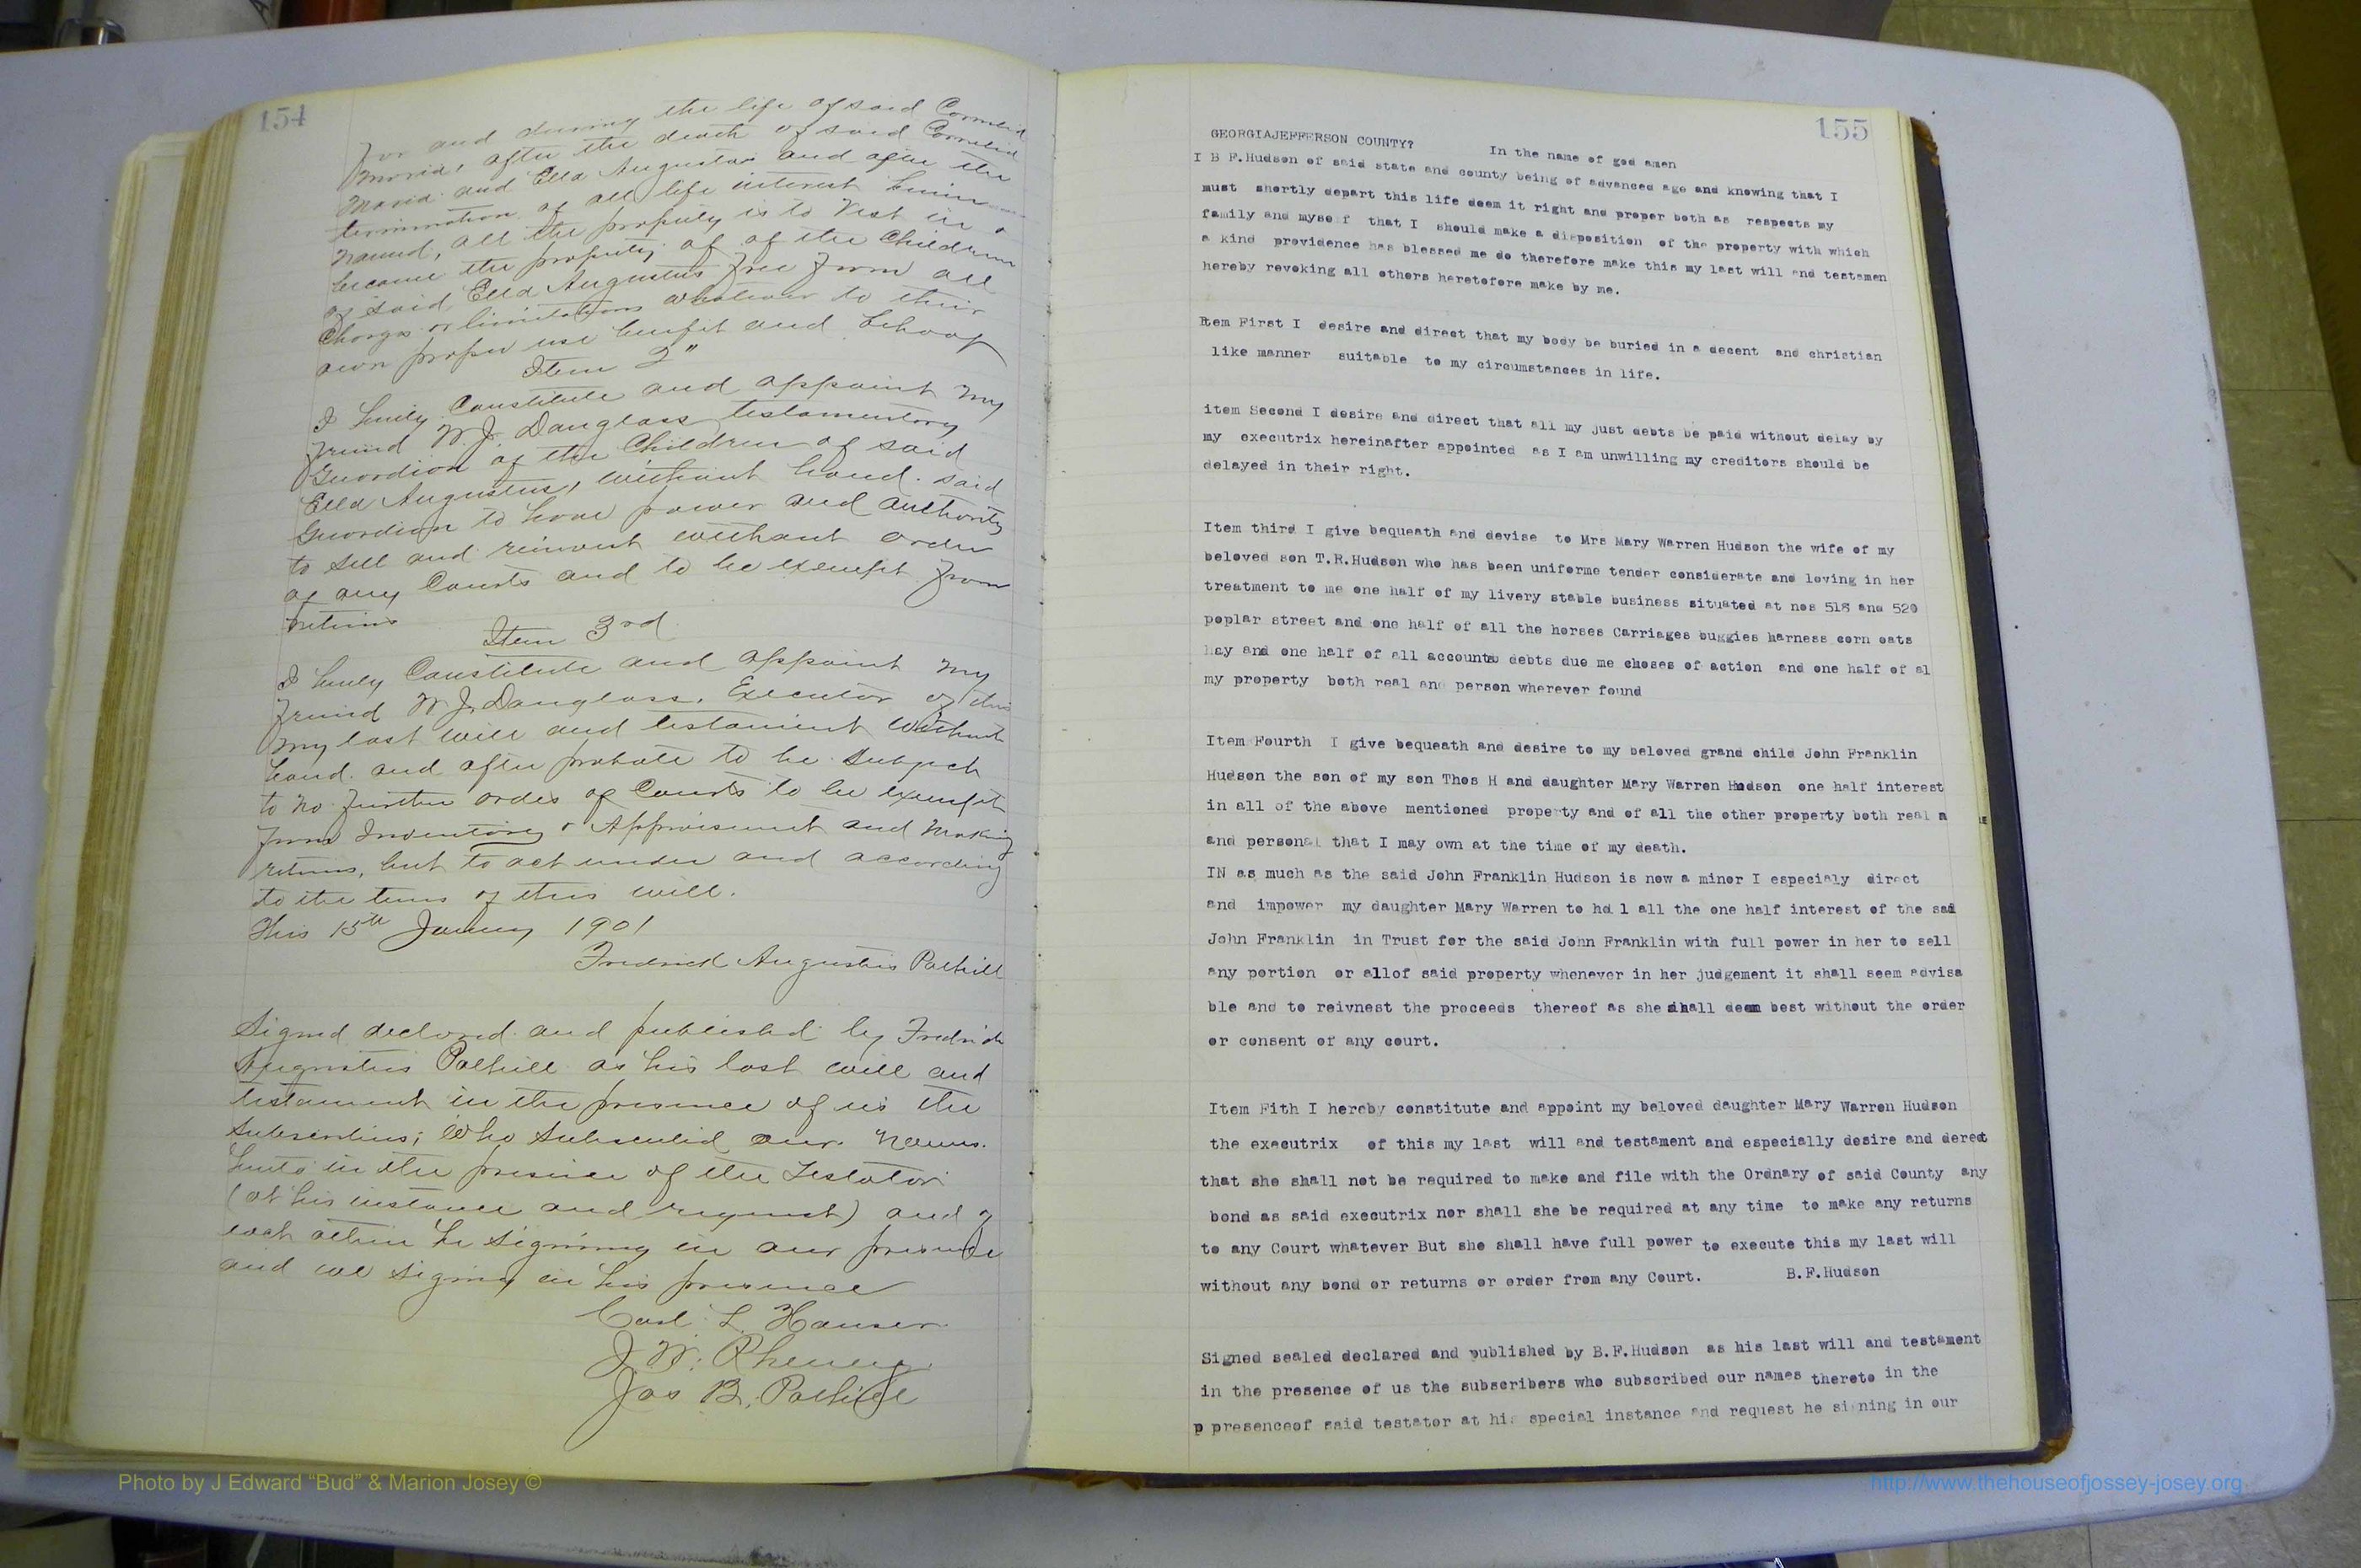 154
for and during the life of said Cornelia
Maria, after the death of said Cornelia
Maria and Ella Augustus and after the
termination of all life interest herein
named, all the property is to Vest in &
become the property of of the Children
of said Ella Augustus free from all
Charge or limitations whatever to their
own proper use benefit and behoof
Item 2"
I hereby Constitute and appoint my
friend W. J. Douglass testamentory
Guardian of the Children of said
Ella Augustus, without bond. said
Guardian to have power and authority
to sell and reinvest without order
of any Courts and to be exempt from
returns
Item 3rd
I hereby Constitute and appoint my
friend W. J. Douglass. Executor of this
my last will and testament without
bond. and after probate to be subject
to no further order of Courts to be exempt
from Inventory & Appraisement and making
returns, but to act under and according
to the terms of this will.
This 15th January 1901
Fredrick Augustus Polhill
Signed declared and published by Fredrick
Augustus Polhill as his last will and
testament in the presence of us the
subscribers; who subscribed our names.
hereto in the presence of the Testator
(at his instance and request) and of
each other he signing in our presence
and we signing in his presence
Carl L. Hauser
J. W. Rheney
Jas B. Polhill
155
GEORGIAJEFFERSON COUNTY? In the name of god amen
I B F.Hudson of said state and county being of advanced age and knowing that I
must shortly depart this life deem it right and proper both as respects my
family and myself that I should make a disposition of the property with which
a kind providence has blessed me do therefore make this my last will and testamen
hereby revoking all others heretofore make by me.
Item First I desire and direct that my body be buried in a decent and christian
like manner suitable to my circumstances in life.
item Second I desire and direct that all my just debts be paid without delay by
my executrix hereinafter appointed as I am unwilling my creditors should be
delayed in their right.
Item third I give bequeath and devise to Mrs Mary Warren Hudson the wife of my
beloved son T.R.Hudson who has been uniforme tender considerate and loving in her
treatment to me one half of my livery stable business situated at nos 518 and 520
poplar street and one half of all the horses Carriages buggies harness corn oats
hay and one half of all accounts debts due me choses of action and one half of al
my property both real and person wherever found
Item Fourth I give bequeath and desire to my beloved grand child John Franklin
Hudson the son of my son Thos H and daughter Mary Warren Hudson one half interest
in all of the above mentioned property and of all the other property both real a
and personal that I may own at the time of my death.
IN as much as the said John Franklin Hudson is now a minor I especialy direct
and impower my daughter Mary Warren to hol l all the one half interest of the said
John Franklin in Trust for the said John Franklin with full power in her to sell
any portion or allof said property whenever in her judgement it shall seem advisa
ble and to reivnest the proceeds thereof as she shall deem best without the order
or consent of any court.
Item Fith I hereby constitute and appoint my beloved daughter Mary Warren Hudson
the executrix of this my last will and testament and especially desire and derect
that she shall not be required to make and file with the Ordnary of said County any
bond as said executrix nor shall she be required at any time to make any returns
to any Court whatever But she shall have full power to execute this my last will
without any bond or returns or order from any Court. B.F.Hudson
Signed sealed declared and published by B.F.Hudson as his last will and testament
in the presence of us the subscribers who subscribed our names thereto in the
p presenceof said testator at his special instance and request he signing in our
Photo by J Edward “Bud” & Marion Josey ©
http://www.thehouseofjossey-josey.org